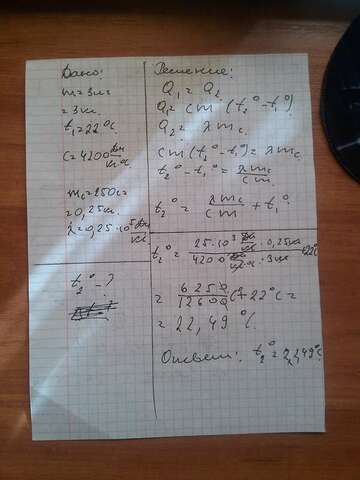 Дано:
m=3кг
=3кг.
t₁=22°C.
c=4200 Дж/кг°C
m c=250г=
=0,25кг.
λ=0,25·10⁵ Дж/кг
t₂°-?
Решение:
Q₁=Q₂
Q₁=cm(t₂°-t₁°)
Q₂=λmc.
cm(t₂°-t₁°)=λmc.
t₂°-t₁°=λmc/cm.
t₂°=λmc/cm+t₁°.
t₂°=25·10³ Дж/кг·0,25кг/4200 Дж/кг°C·3кг+22°C
=6250/12600°C+22°C=
=22,49°C.
Ответ: t₂°=22,49°C